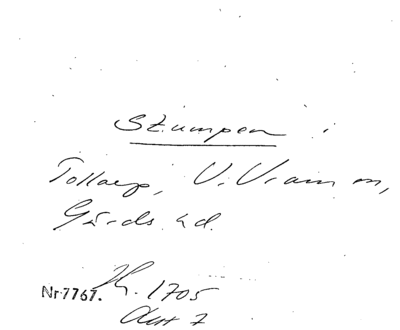 Stumpen i
Tollarp, V. Vram sn,
Gärds hd.
Nr 7767. 1705
7